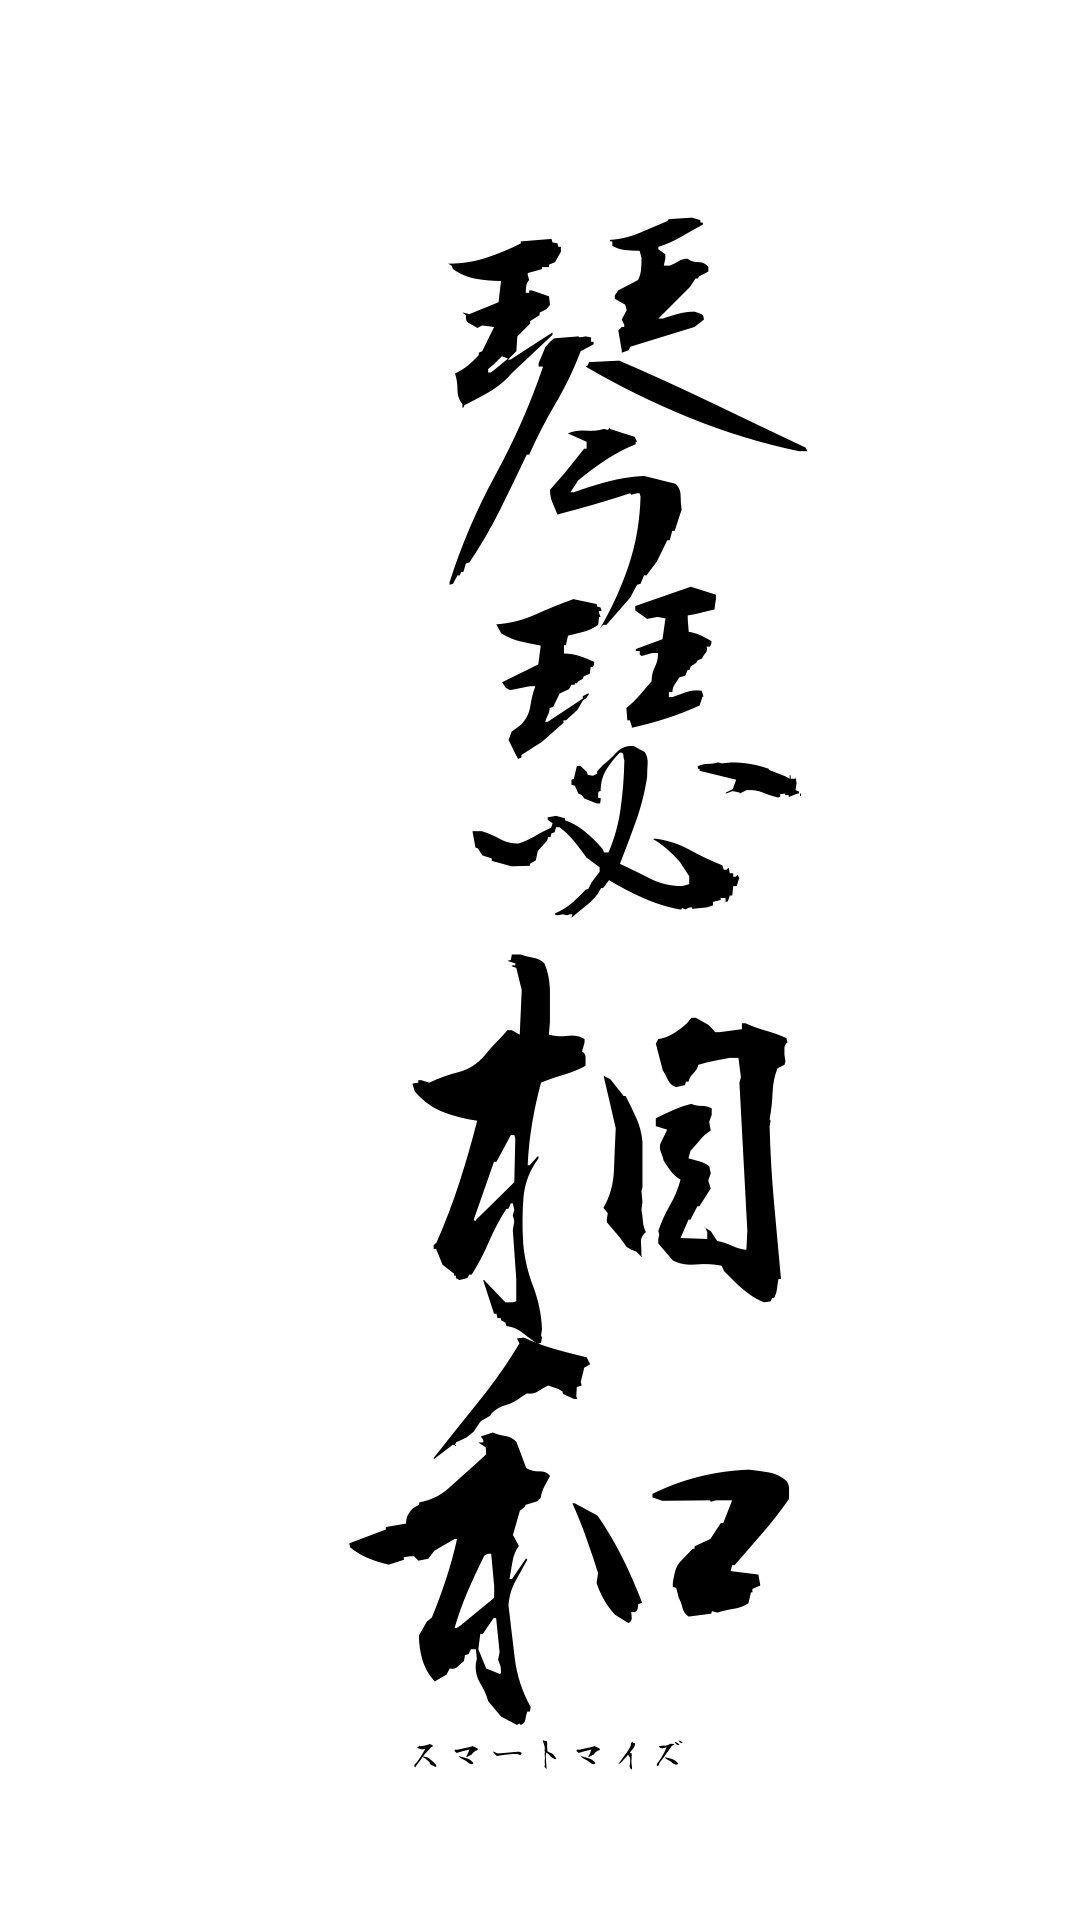 琴瑟相和
スマートマイズ